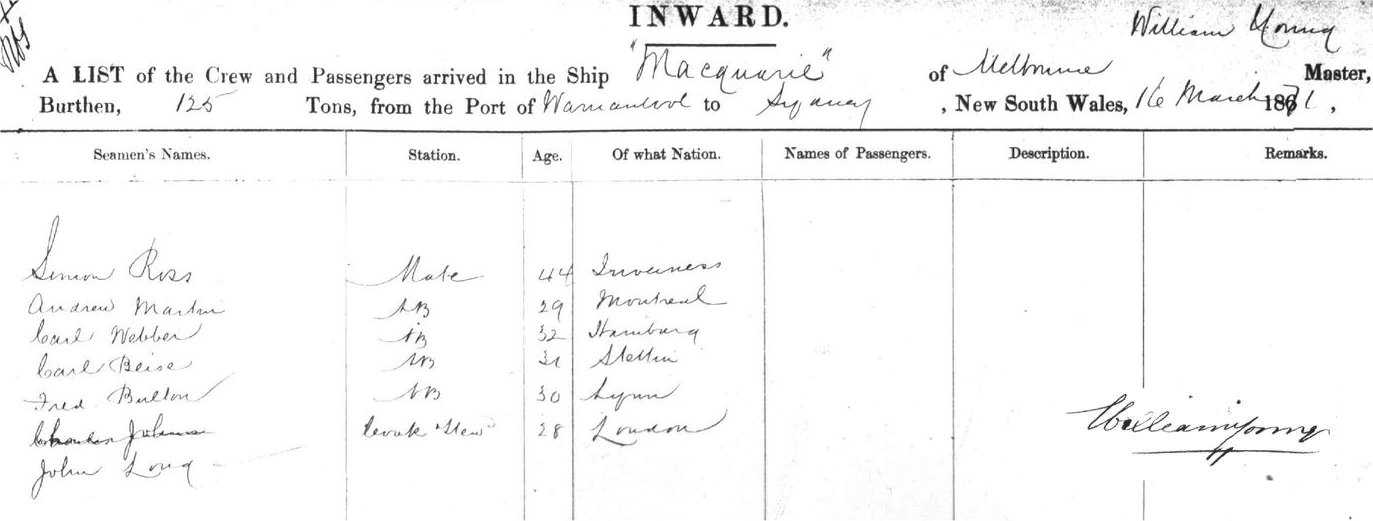 INWARD.
William Young
A LIST of the Crew and Passengers arrived in the Ship "Macquarie" of Melbourne Master,
Burthen, 125 Tons, from the Port of to Sydney, New South Wales, 16 March 1871,
Seamen's Names. Station. Age. Of what Nation. Names of Passengers. Description. Remarks.
Simon Ross Mate 44 Inverness
Andrew Martin AB 29 Montreal
Carl Webber AB 32 Hamburg
Carl Beise AB 31 Stettin
Fred Bulton AB 30 Lynn
Cook & Stew 28 London
William Young
John Long